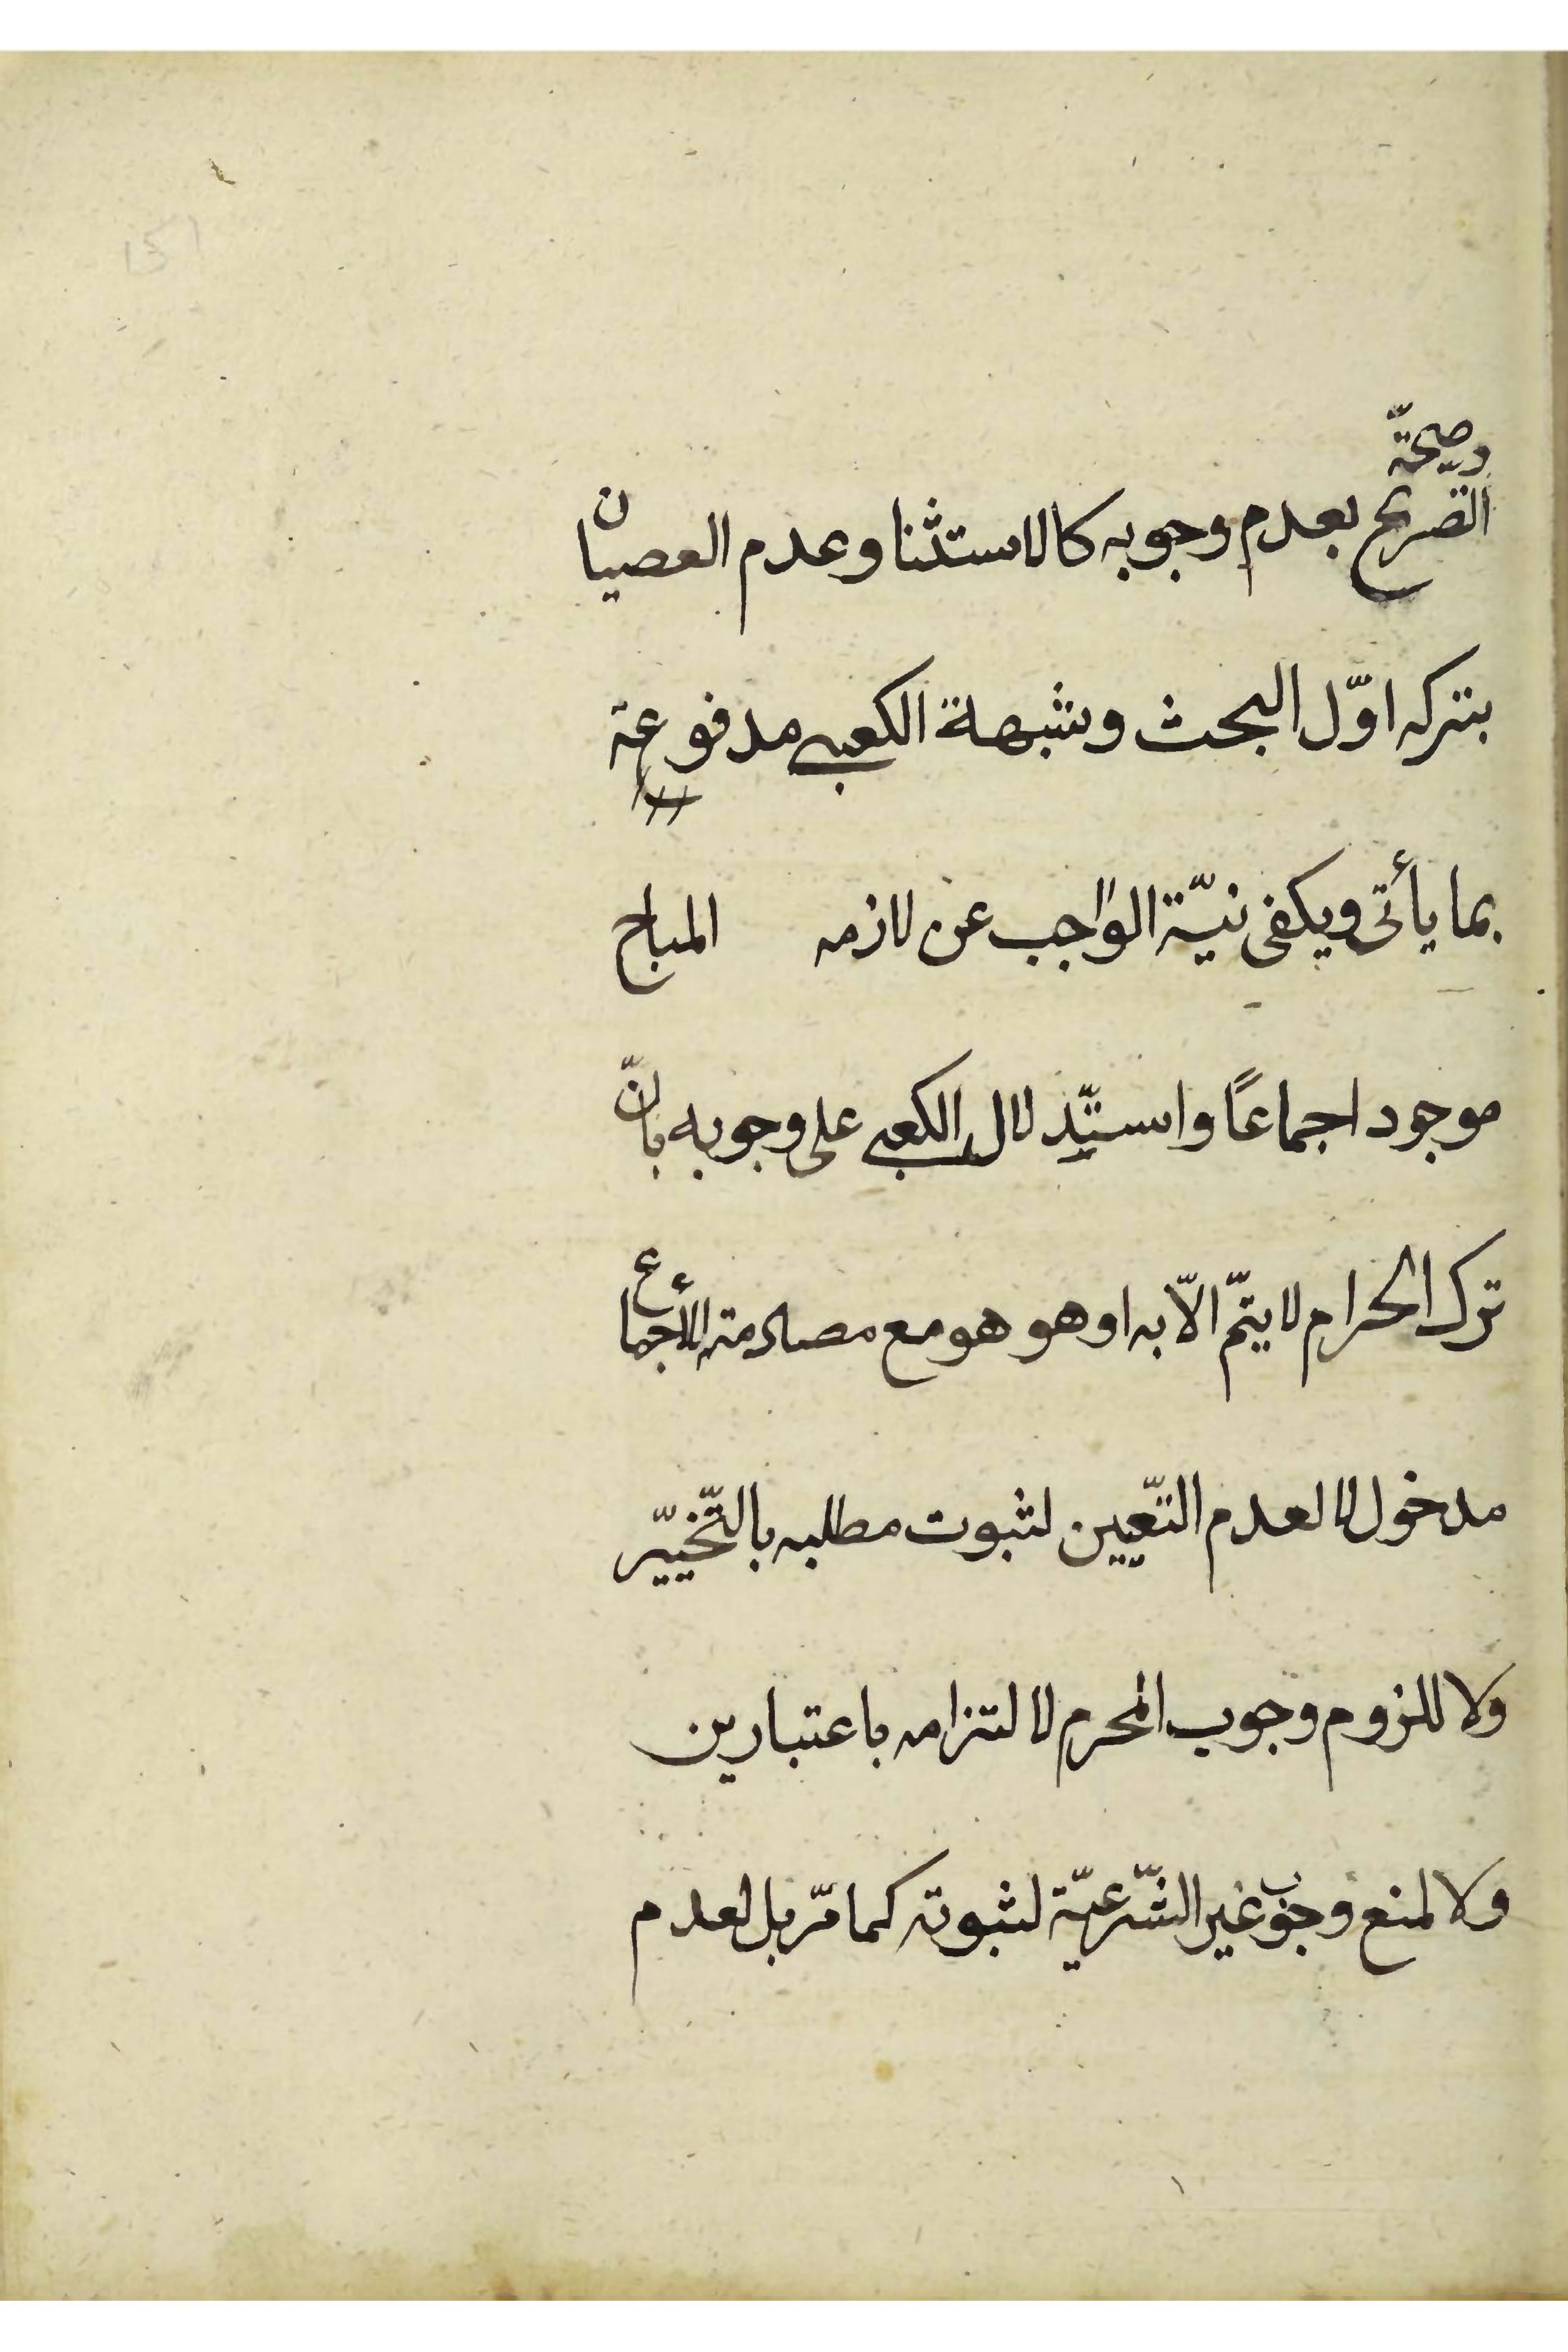 وصحّة
التصريح بعدم وجوبه كالاستثنا وعدم العصيان
بتركه اوّل البحث وشبهة الكعبي مدفوعة
بما يأتى ويكفى نيّة الواجب عن لازمه المباح
موجود اجماعًا واستدلال الكعبي على وجوبه بانّ
ترك الحرام لا يتمّ الاّ به او هو هو مع مصادمته الأجماع
مدخول لا لعدم التّعيين لثبوت مطلبه بالتّخيّير
ولا للزوم وجوب المحرم لالتزامه باعتبارين
ولا لمنع وجوب غير الشّرعيّة لثبوته كما مرّ بل لعدم